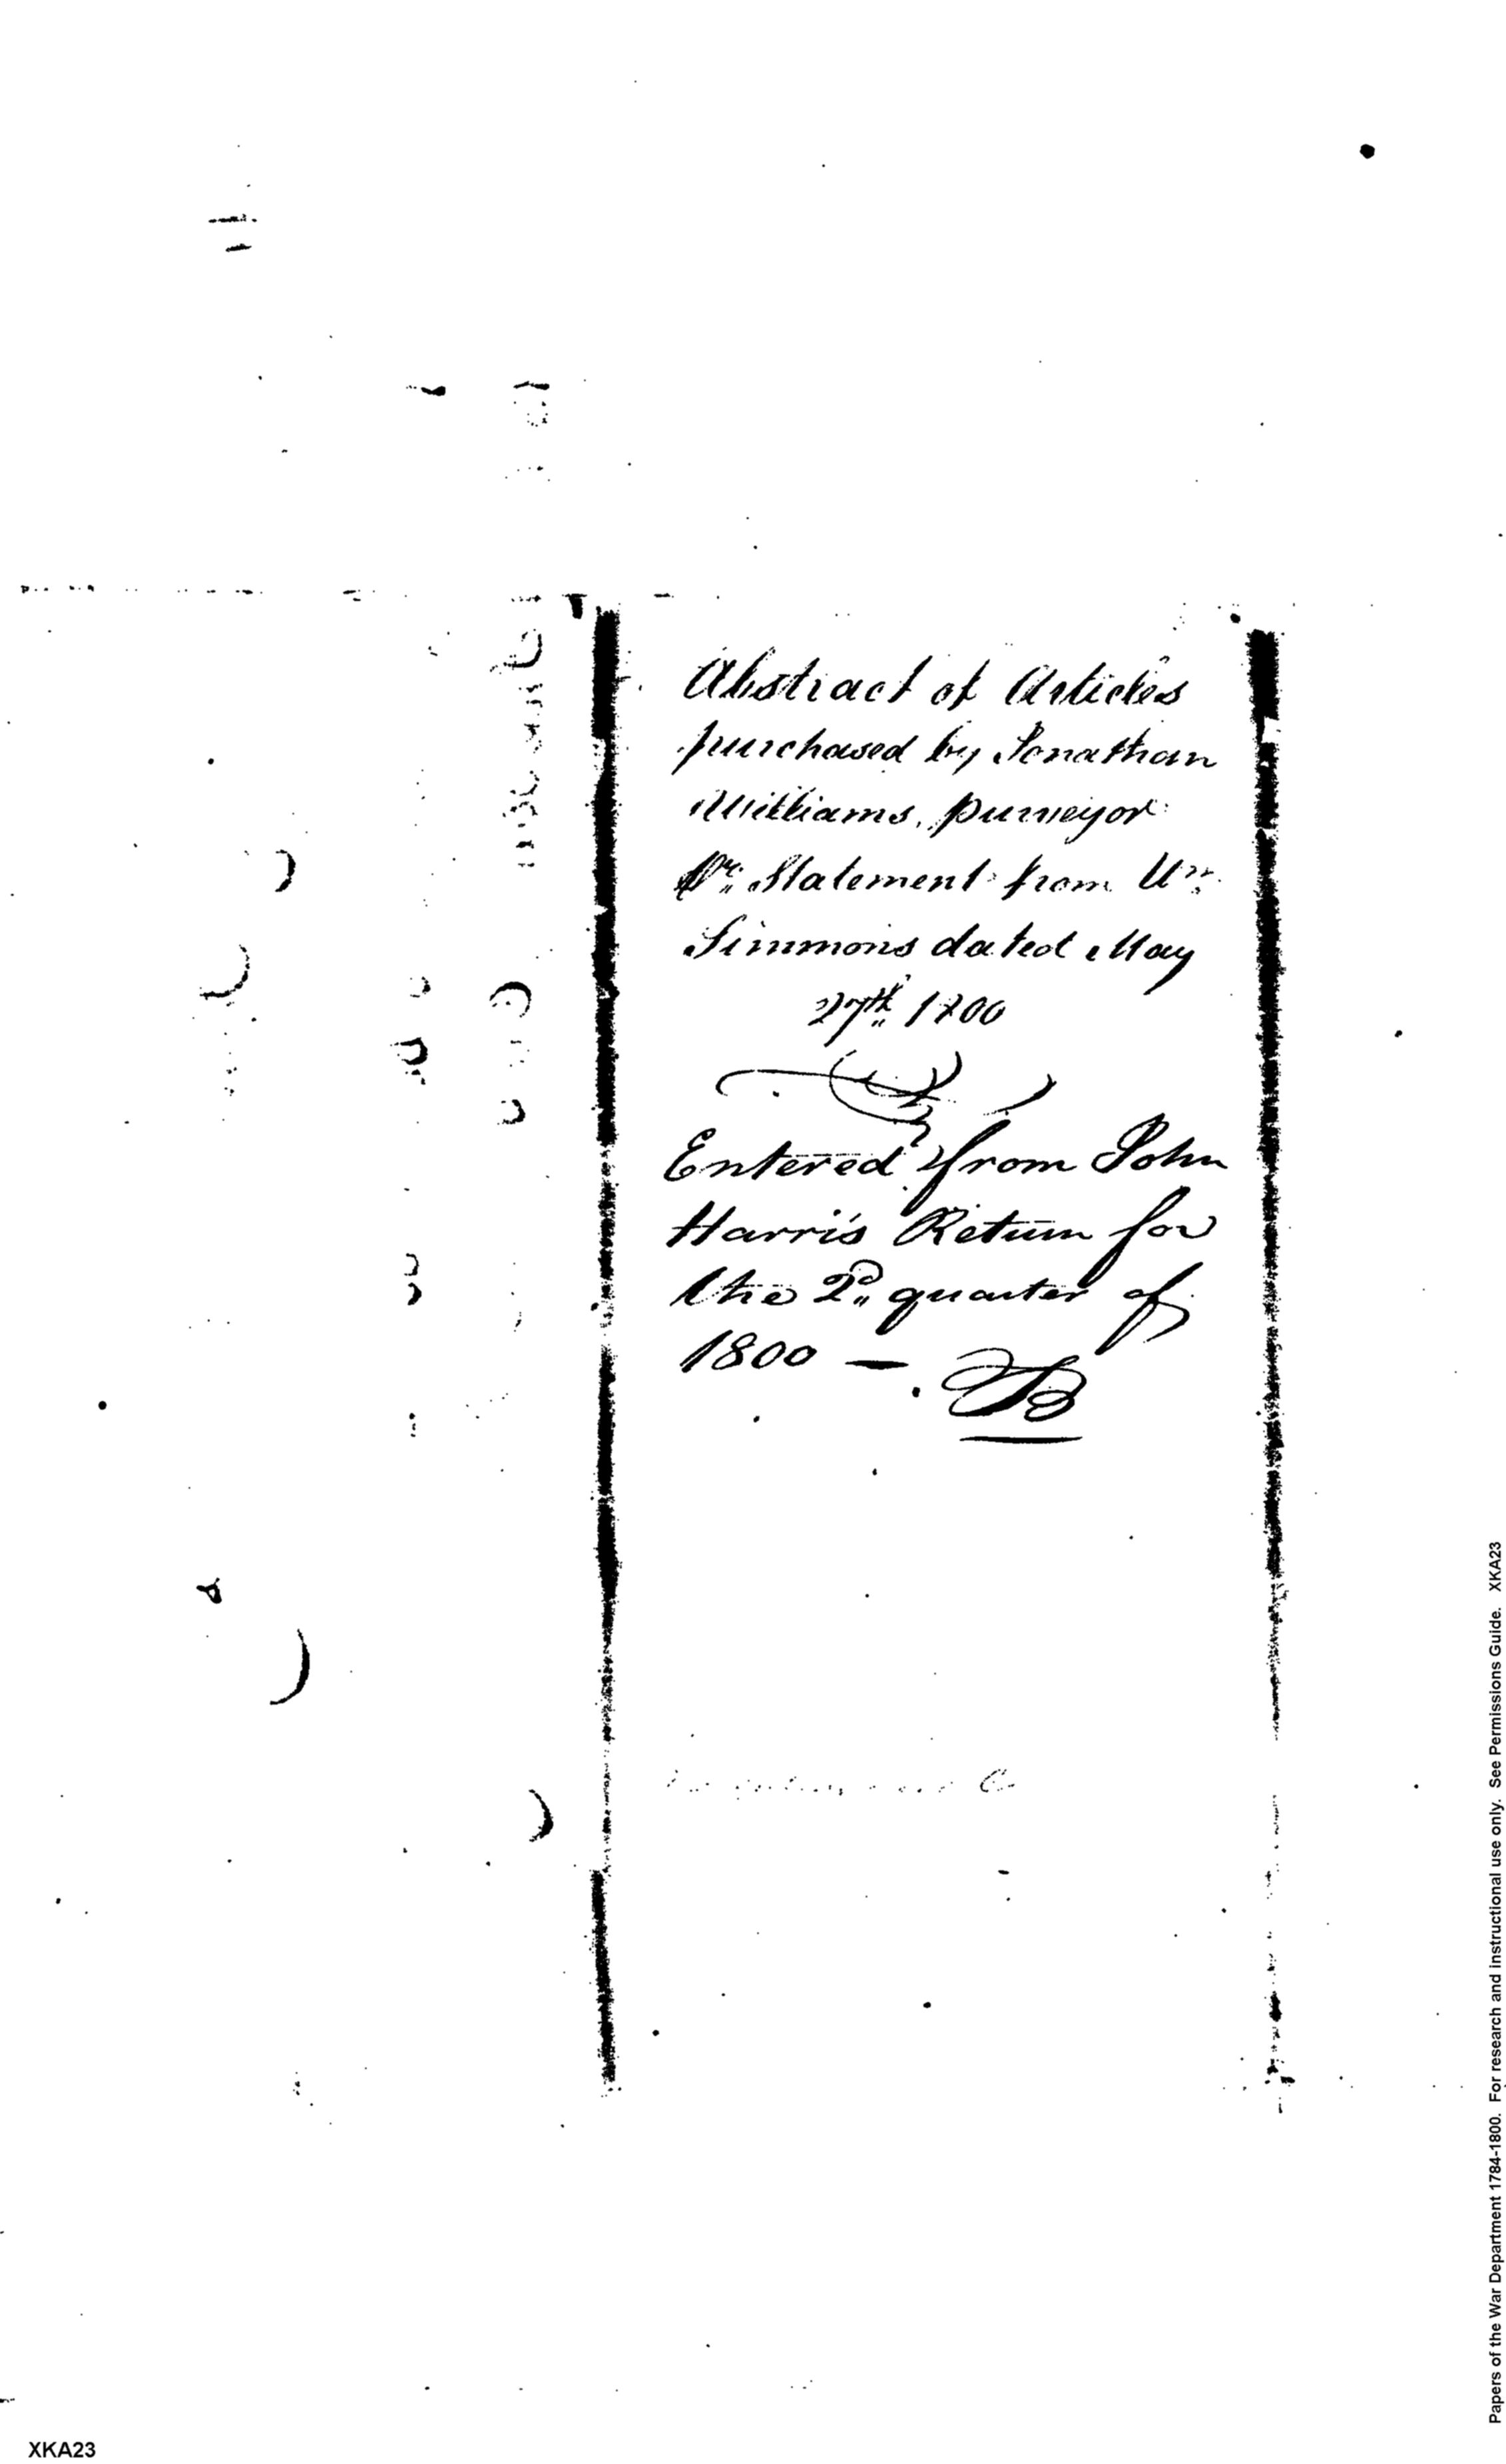 Abstract of Articles
purchased by Jonathan
Williams, purveyor
Pr. Statement from Wm.
Simmons dated May
27th 1800
Entered from John
Harris Return for
the 2d. quarter of
1800 —
Papers of the War Department 1784-1800. For research and instructional use only. See Permissions Guide. XKA23
XKA23